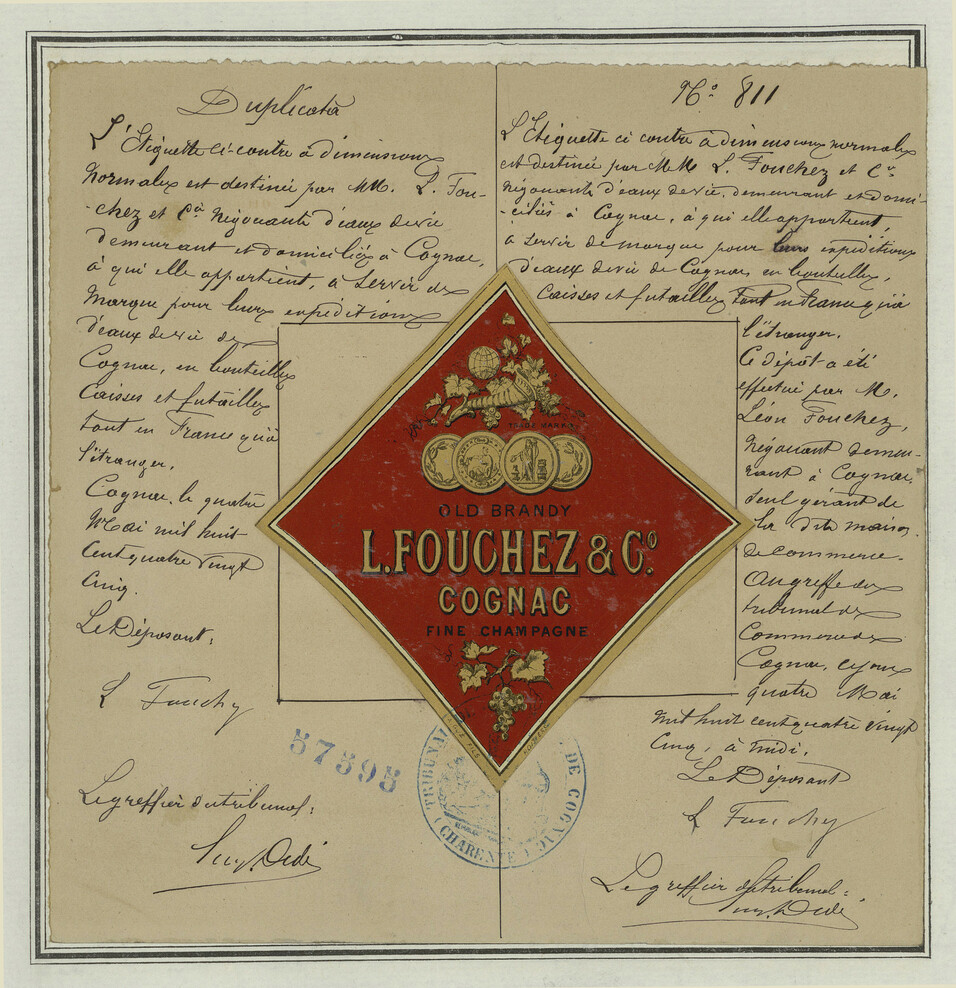 Duplicata
L'Etiquette ci-contre à dimensions
normales est destinée par MM. L. Fou-
-chez et Cie Négociants d'eaux de vie
demeurant et domiciliés à Cognac,
à qui elle appartient, à servir de
marque pour leurs expéditions
d'eaux de vie de
Cognac, en bouteilles
Caisses et futailles
tant en France qu'à
l'étranger.
Cognac, le quatre
Mai mil huit
cent quatre vingt
cinq.
Le Déposant:
L Fouchez
Le greffier du tribunal:
No 811
L'Etiquette ci contre à dimensions normales
est destinée par MM L. Fouchez et Cie
Négociants d'eaux de vie, demeurant et domi-
-ciliés à Cognac, à qui elle appartient,
à servir de marque pour leurs expéditions
d'eaux de vie de Cognac, en bouteilles,
Caisses et futailles tant en France qu'à
l'étranger.
Ce dépôt a été
effectué par M.
Léon Fouchez,
Négociant demeu-
rant à Cognac,
seul gérant de
la dite maison
de commerce.
Au greffe du
tribunal de
Commerce de
Cognac, ce jour
quatre Mai
mil huit cent quatre vingt
cinq, à midi.
Le Déposant
L Fouchez
Le greffier du tribunal:
TRADE MARK
OLD BRANDY
L. FOUCHEZ & Co.
COGNAC
FINE CHAMPAGNE
57595
TRIBUNAL DE COGNAC
(CHARENTE)